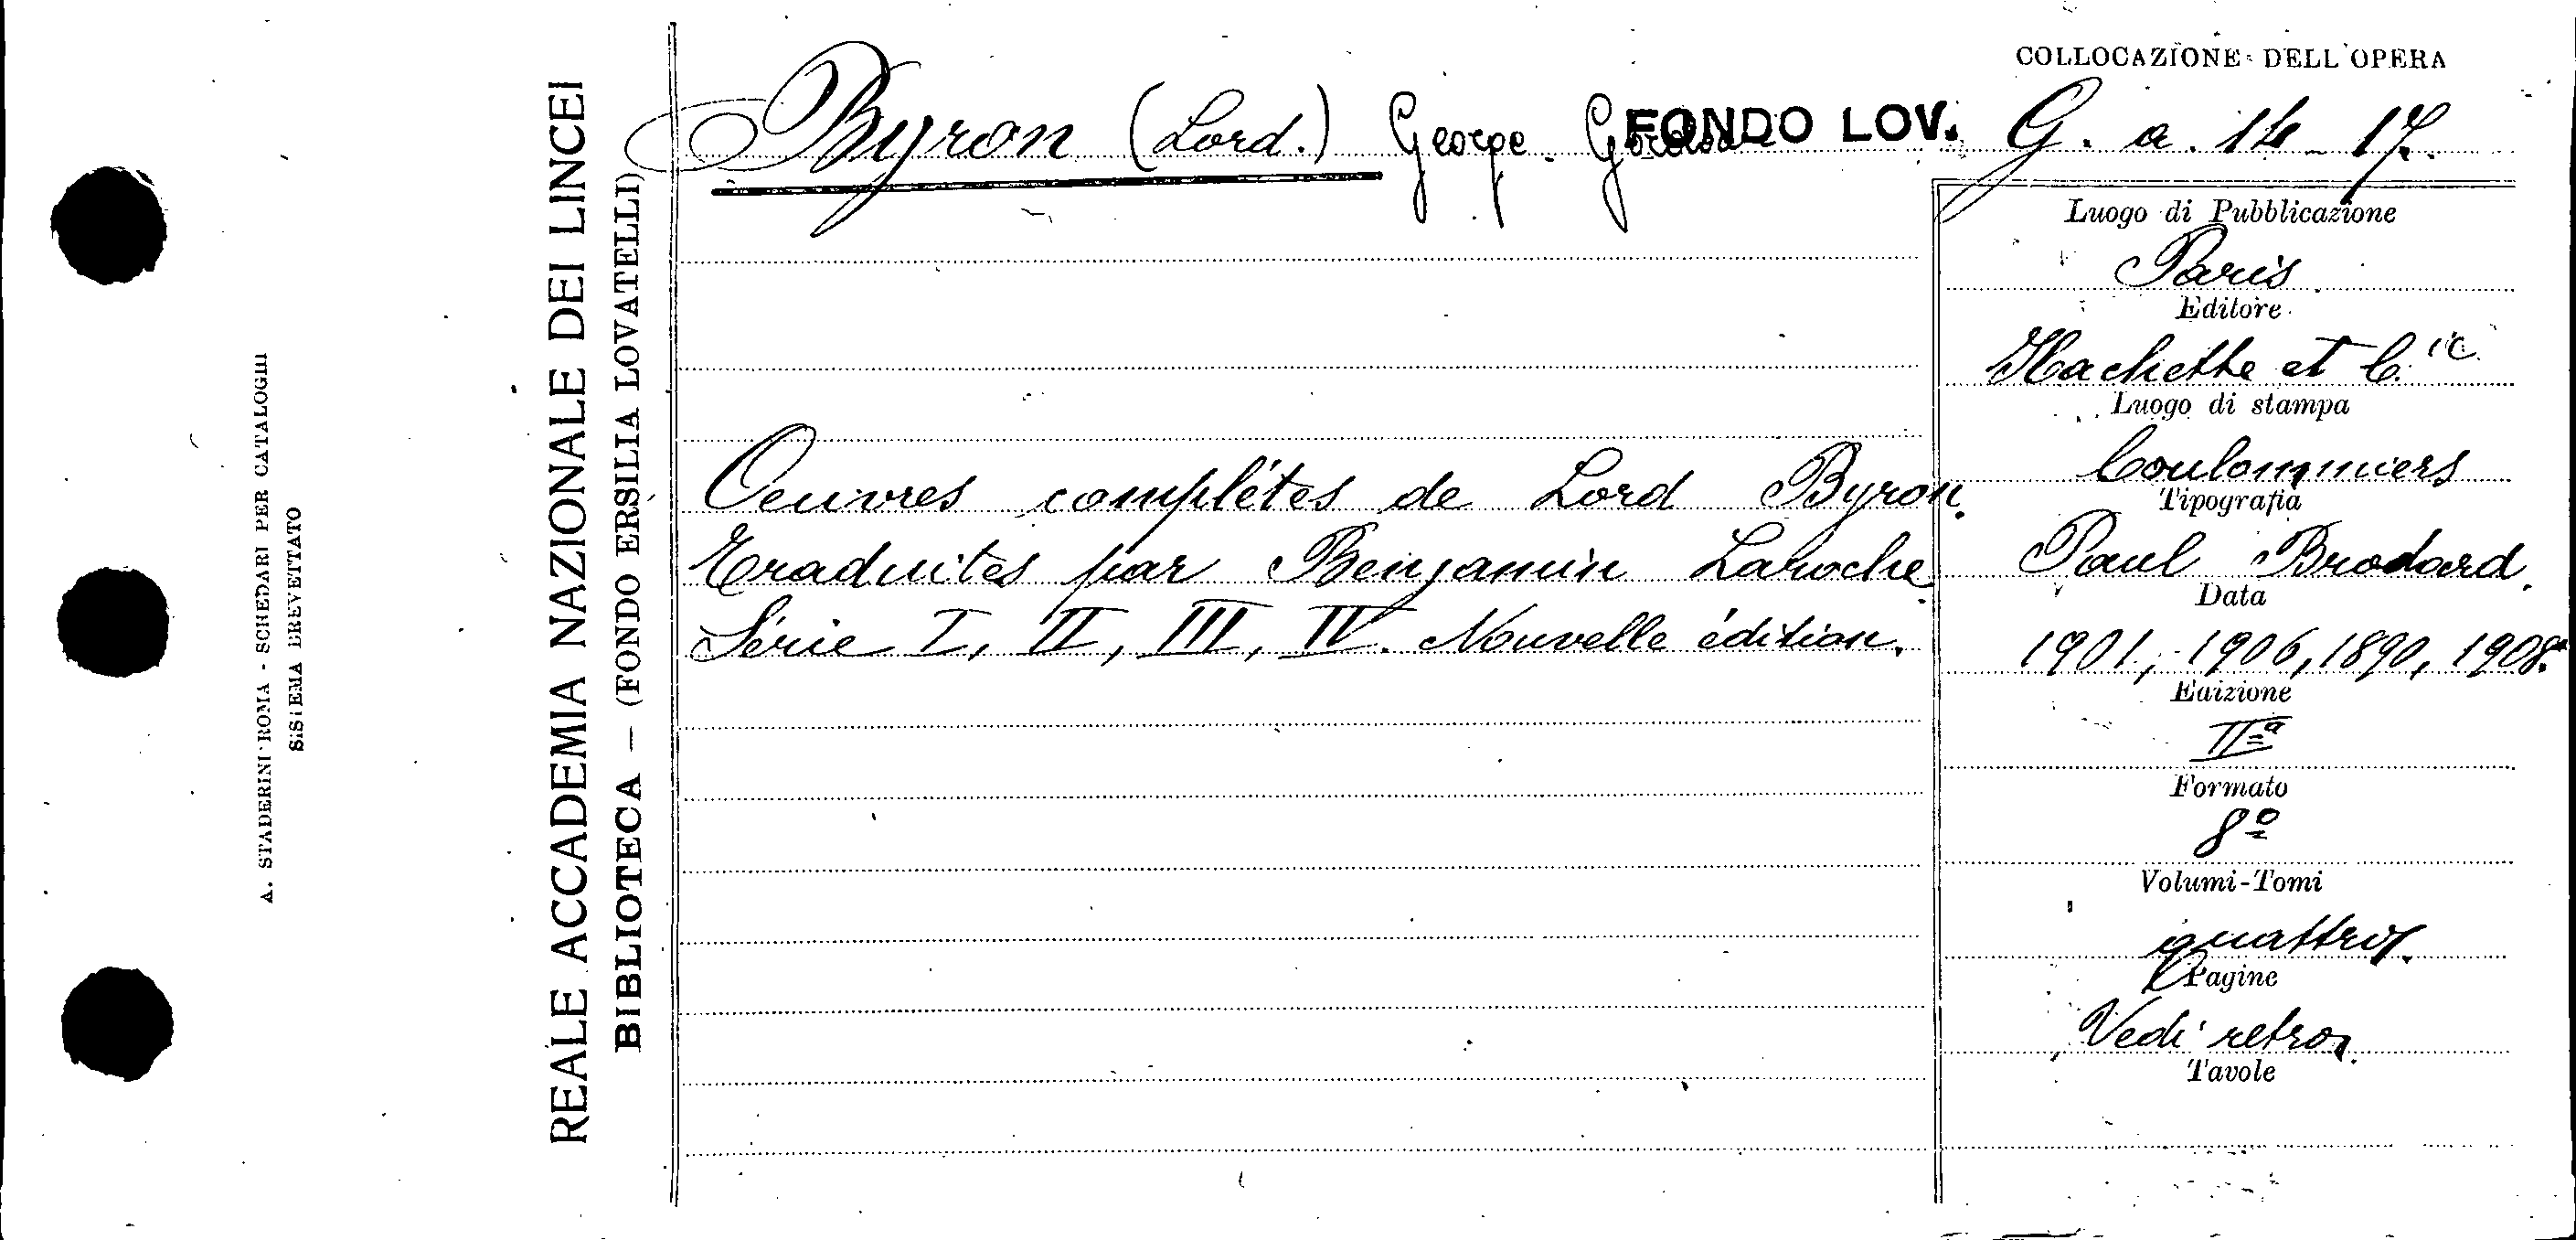 A. STADERINI ROMA - SCHEDARI PER CATALOGHI
SISTEMA BREVETTATO
REALE ACCADEMIA NAZIONALE DEI LINCEI
BIBLIOTECA — (FONDO ERSILIA LOVATELLI)
Byron (Lord.) George Gordon
FONDO LOV.
Oeuvres complétes de Lord Byron.
Traduites par Benjamin Laroche.
Série I, II, III, IV. Nouvelle édition.
COLLOCAZIONE DELL'OPERA
G. a. 14 - 17.
Luogo di Pubblicazione
Paris
Editore
Hachette et C.ie
Luogo di stampa
Coulommiers
Tipografia
Paul Brodard.
Data
1901, 1906, 1890, 1908.
Edizione
IIª
Formato
8º
Volumi-Tomi
quattro.
Pagine
Vedi retro.
Tavole